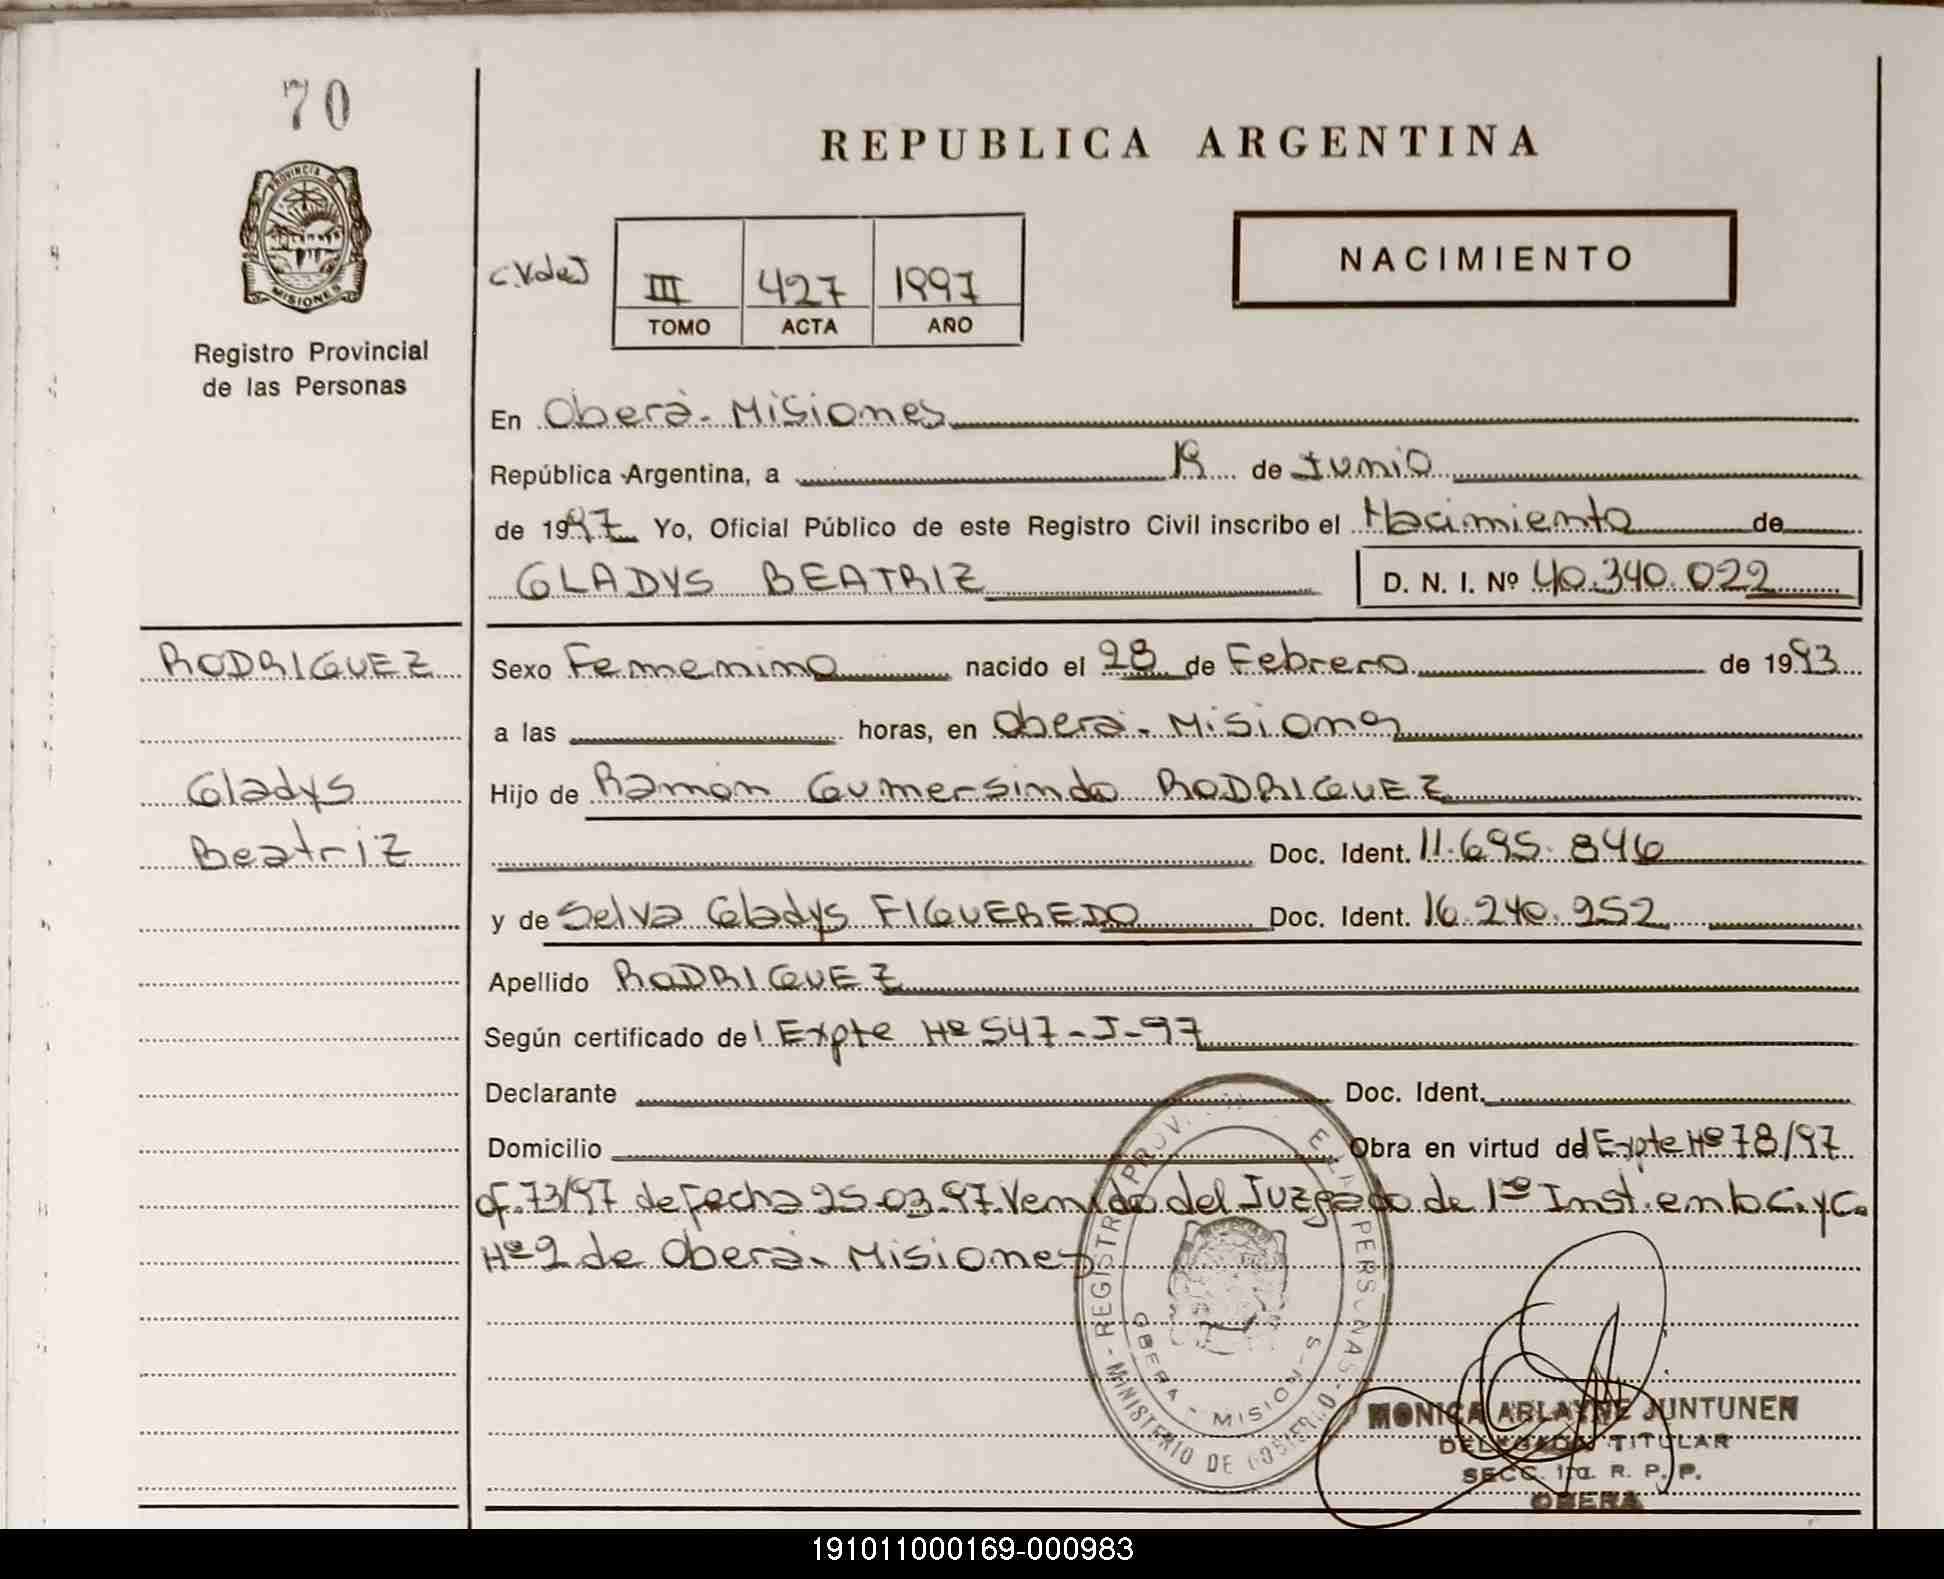 70
PROVINCIA DE
MISIONES
Registro Provincial
de las Personas
REPUBLICA ARGENTINA
NACIMIENTO
III 427 1997
TOMO ACTA AÑO
En Oberá - Misiones
República Argentina, a 19 de Junio
de 1997 Yo, Oficial Público de este Registro Civil inscribo el Nacimiento de
GLADYS BEATRIZ D. N. I. Nº 40.340.022
RODRIGUEZ
Gladys
Beatriz
Sexo Femenino nacido el 28 de Febrero de 1993
a las horas, en Oberá - Misiones
Hijo de Ramón Gumersindo RODRIGUEZ
Doc. Ident. 11.695.846
y de Selva Gladys FIGUEREDO Doc. Ident. 16.240.952
Apellido RODRIGUEZ
Según certificado del Expte Nº 547-J-97
Declarante Doc. Ident.
Domicilio Obra en virtud del Expte Nº 78/97
of. 73/97 de fecha 25-03-97. Venido del Juzgado de 1ra Inst. en lo C. y C.
Nº 2 de Oberá - Misiones
REGISTRO PROV. PERSONAS - MINISTERIO DE GOBIERNO
OBERA - MISIONES
MONICA ARLAYNE JUNTUNEN
DELEGADA TITULAR
SECC. 1ra. R. P. P.
OBERA
191011000169-000983